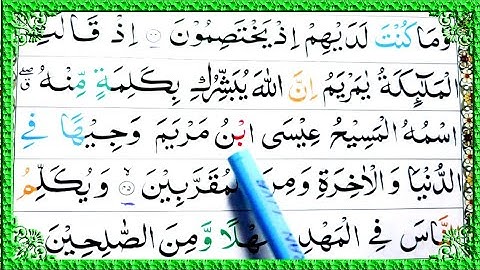 وَمَا كُنْتَ لَدَيْهِمْ اِذْ يَخْتَصِمُوْنَ اِذْ قَالَتِ
الْمَلٰٓئِكَةُ يٰمَرْيَمُ اِنَّ اللّٰهَ يُبَشِّرُكِ بِكَلِمَةٍ مِّنْهُ
اسْمُهُ الْمَسِيْحُ عِيْسَى ابْنُ مَرْيَمَ وَجِيْهًا فِي
الدُّنْيَا وَالْاٰخِرَةِ وَمِنَ الْمُقَرَّبِيْنَ وَيُكَلِّمُ
نَّاسَ فِي الْمَهْدِ هْلًا وَّمِنَ الصّٰلِحِيْنَ